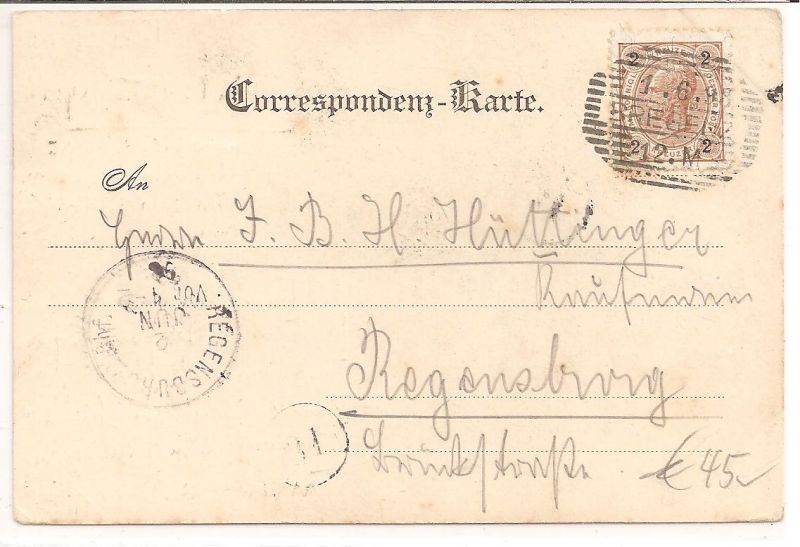 Correspondenz-Karte.
2 2
2 2
1.6.
12.M
An
Herrn J. B. H. Hüttinger
Kaufmann
Regensburg
€ 45
REGENSBURG
VOR
JUN
2